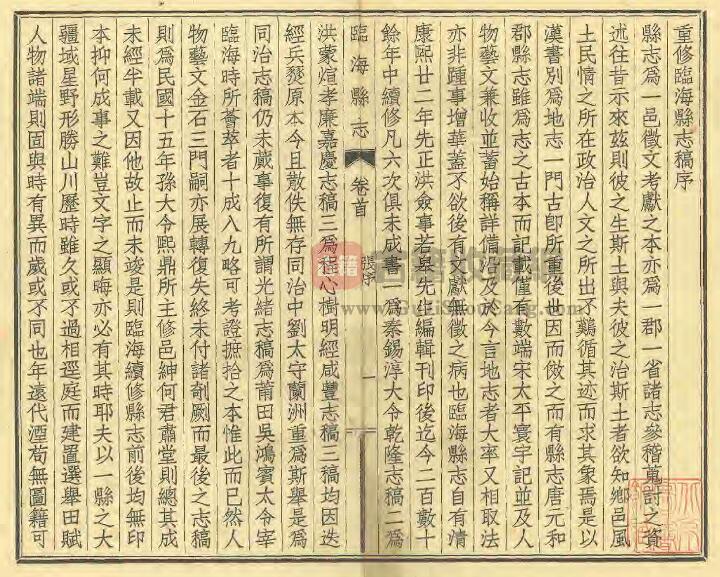 重修臨海縣志稿序
縣志爲一邑徵文考獻之本亦爲一郡一省諸志參稽蒐討之資
述往昔示來茲則彼之生斯土與夫彼之治斯土者欲知鄉邑風
土民情之所在政治人文之所出不鷄循其迹而求其象焉是以
漢書別爲地志一門古卽所重後世因而倣之而有縣志唐元和
郡縣志雖爲志之古本而記載僅有數端宋太平寰宇記並及人
物藝文兼收並蓄始稱詳備以及於今言地志者大率又相取法
亦非踵事增華蓋不欲後有文獻無徵之病也臨海縣志自有清
康熙廿二年先正洪僉事若皋先生編輯刊印後迄今二百數十
餘年中續修凡六次俱未成書一爲秦錫淳大令乾隆志稿二爲
臨海縣志 卷首 張序 一
洪蒙煊孝廉嘉慶志稿三爲程心樹明經咸豐志稿三稿均因迭
經兵燹原本今且散佚無存同治中劉太守蘭洲重爲斯舉是爲
同治志稿仍未蕆事復有所謂光緒志稿爲莆田吳鴻賓太令宰
臨海時所薈萃者十成八九略可考證摭拾之本惟此而已然人
物藝文金石三門嗣亦展轉復失終未付諸剞劂而最後之志稿
則爲民國十五年孫大令熙鼎所主修邑紳何君肅堂則總其成
未經半載又因他故止而未竣是則臨海續修縣志前後均無印
本抑何成事之難豈文字之顯晦亦必有其時耶夫以一縣之大
疆域星野形勝山川歷時雖久或不過相逕庭而建置選舉田賦
人物諸端則固與時有異而歲或不同也年遠代湮苟無圖籍可